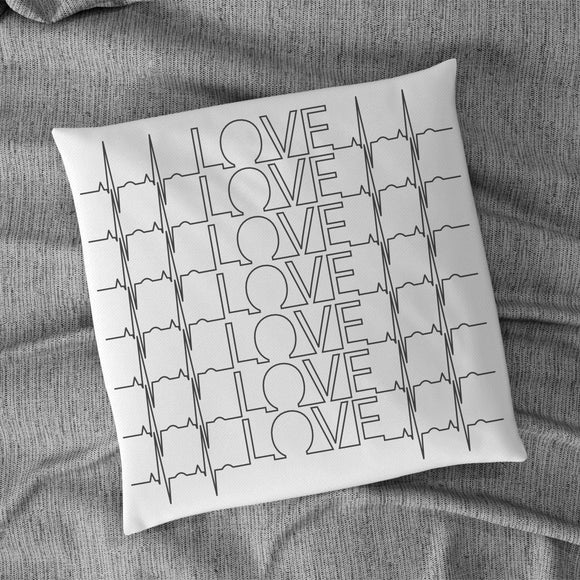 LOVE
LOVE
LOVE
LOVE
LOVE
LOVE
LOVE